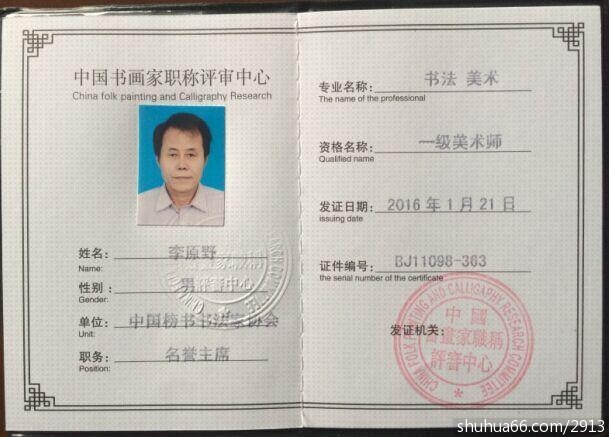 中国书画家职称评审中心
China folk painting and Calligraphy Research
姓名: 李原野
Name:
性别: 男
Gender:
单位: 中国榜书书法家协会
Unit:
职务: 名誉主席
Position:
专业名称: 书法 美术
The name of the professional
资格名称: 一级美术师
Qualified name
发证日期: 2016年1月21日
issuing date
证件编号: BJ11098-363
the serial number of the certificate
发证机关:
CHINA FOLK PAINTING AND CALLIGRAPHY RESEARCH COMMITTEE
中國
書畫家職稱
評審中心
shuhua66.com/2913